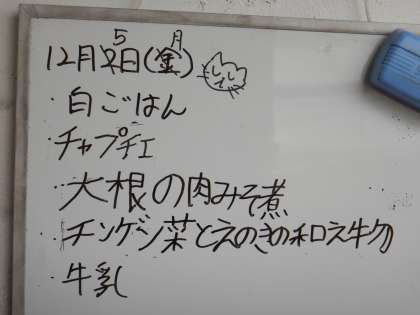 12月5日(月)
・白ごはん
・チャプチェ
・大根の肉みそ煮
・チンゲン菜とえのきの和え物
・牛乳